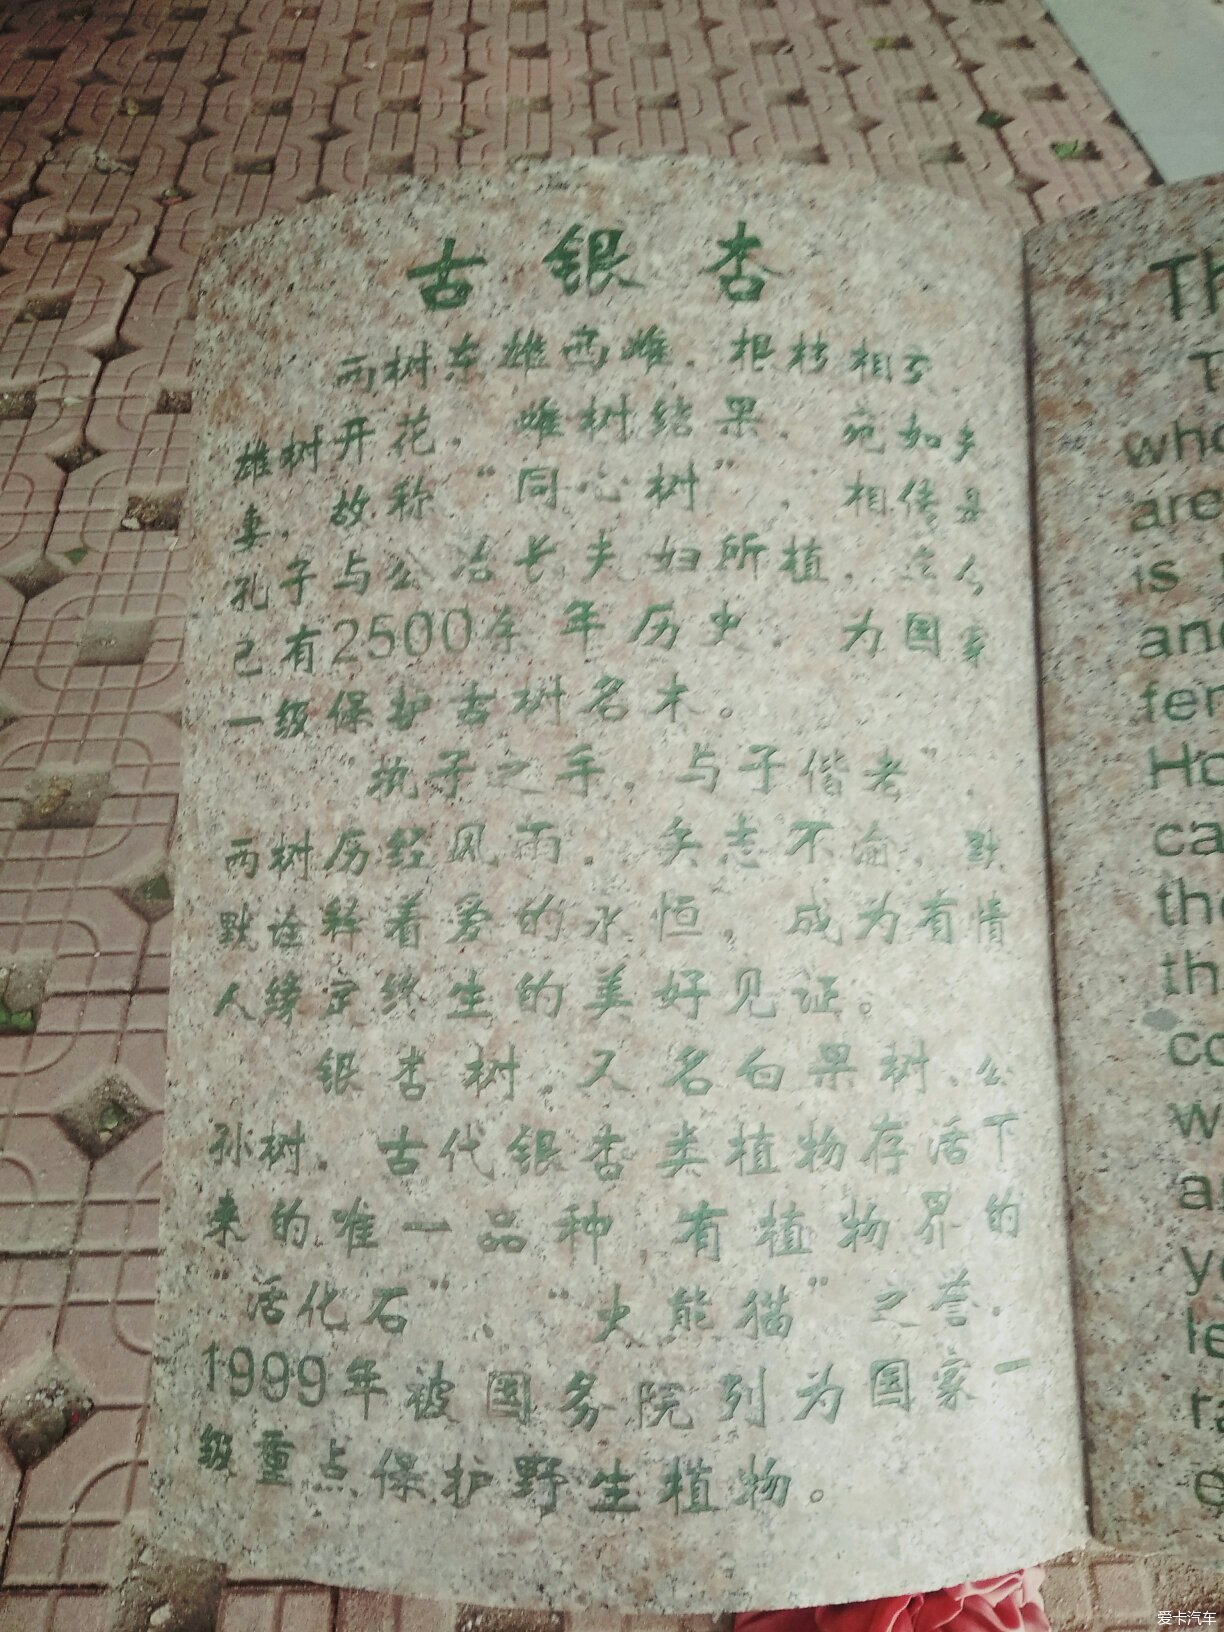 古银杏
两树东雄西雌，根枝相
雄树开花，雌树结果，宛如夫
妻，故称“同心树”，相传是
孔子与公冶长夫妇所植，
已有2500余年历史，为国家
一级保护古树名木。
“执子之手，与子偕老”，
两树历经风雨，矢志不渝，默
默诠释着爱的永恒，成为有情
人缘定终生的美好见证。
银杏树，又名白果树、公
孙树，古代银杏类植物存活下
来的唯一品种，有植物界的
“活化石”、“大熊猫”之誉，
1999年被国务院列为国家一
级重点保护野生植物。
Th
T
who
are
is
and
fer
Ho
ca
th
th
co
w
a
y
le
ra
e
爱卡汽车